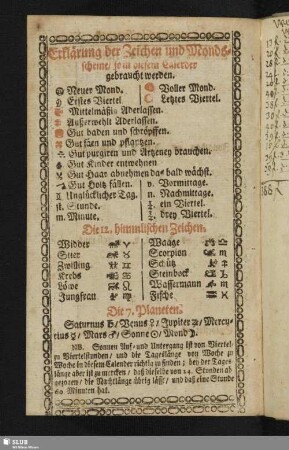 Erklärung der Zeichen und Monds-
scheine, so in diesem Calender
gebraucht werden.
Neuer Mond. Voller Mond.
Erstes Viertel Letztes Viertel.
Mittelmäßig Aderlassen.
Außerwehlt Aderlassen.
Gut baden und schröpffen.
Gut säen und pflantzen.
Gut purgiren und Artzeney brauchen.
Gut Kinder entwehnen
Gut Haar abnehmen das bald wächst.
Gut Holtz fällen. v. Vormittage.
Unglücklicher Tag. n. Nachmittage.
st. Stunde. ein Viertel.
m. Minute. drey Viertel.
Die 12. himmlischen Zeichen.
Widder ♈ Waage ♎
Stier ♉ Scorpion ♏
Zwilling ♊ Schütz ♐
Krebs ♋ Steinbock ♑
Löwe ♌ Wassermann ♒
Jungfrau ♍ Fische ♓
Die 7. Planeten.
Saturnus ♄/ Venus ♀/ Jupiter ♃/ Mercu-
rius ☿/ Mars ♂/ Sonne ☉/ Mond ☽.
NB. Sonnen Auf- und Untergang ist von Viertel-
zu Viertelstunden/ und die Tageslänge von Woche zu
Woche in diesem Calender richtig zu finden; bey der Tages-
länge aber ist zu mercken/ daß dieselbe von 24. Stunden ab-
gezogen/ die Nachtlänge übrig läßt/ und daß eine Stunde
60 Minuten hat.
SLUB